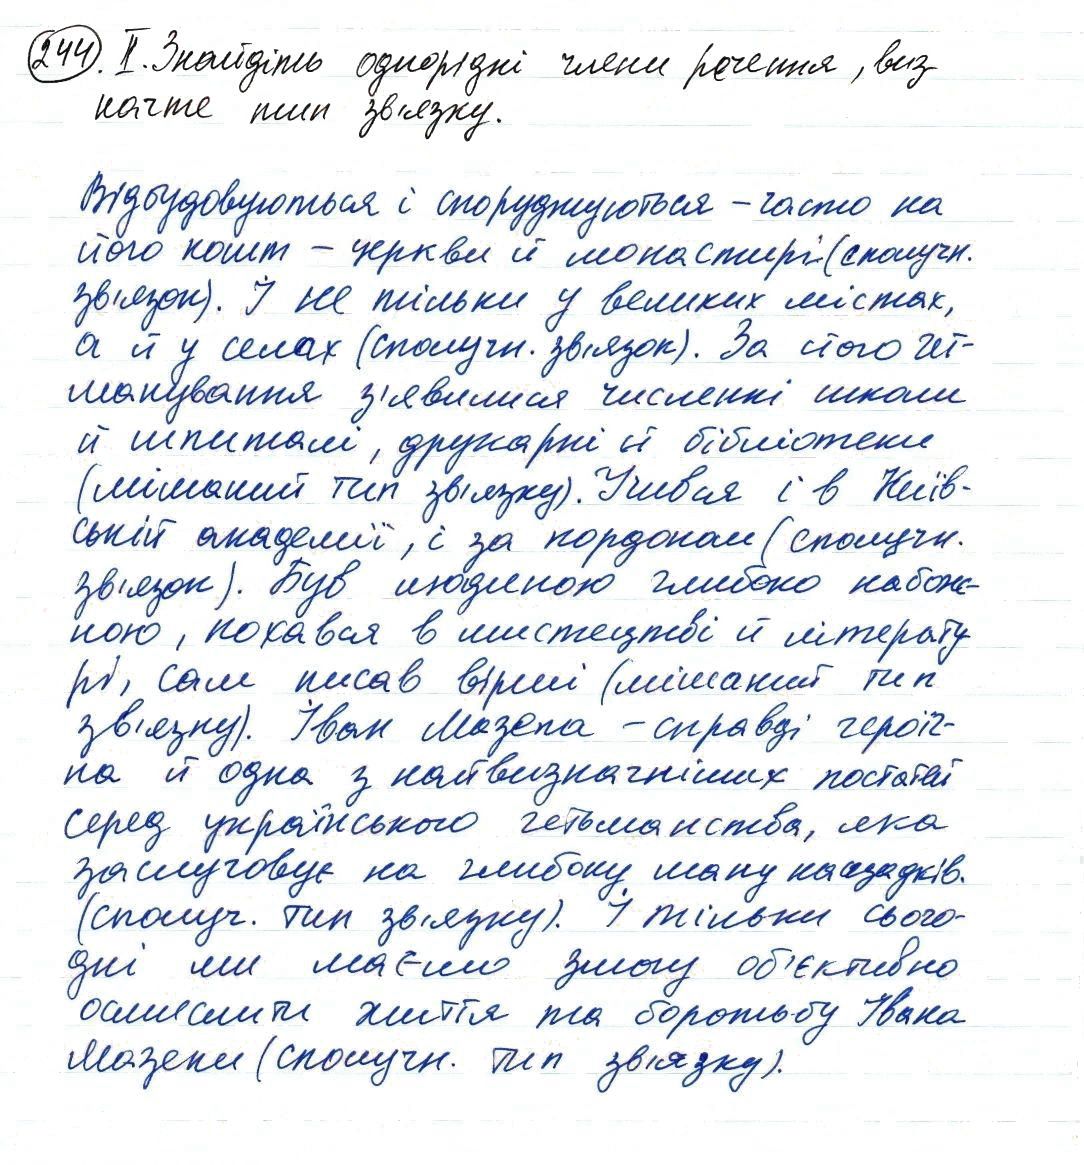 244. II. Знайдіть однорідні члени речення, виз
начте тип зв'язку.
Відбудовуються і споруджуються – часто на
його кошт – церкви й монастирі (сполучн.
зв'язок). І не тільки у великих містах,
а й у селах (сполучн. зв'язок). За його гет-
манування з'явилися численні школи
й шпиталі, друкарні й бібліотеки
(мішаний тип зв'язку). Учився і в Київ-
ській академії, і за кордоном (сполучн.
зв'язок). Був людиною глибоко набож-
ною, кохався в мистецтві й літерату
рі, сам писав вірші (мішаний тип
зв'язку). Іван Мазепа – справді героїч-
на й одна з найвизначніших постатей
серед українського гетьманства, яка
заслуговує на глибоку шану нащадків.
(сполуч. тип зв'язку). І тільки сього-
дні ми маємо змогу об'єктивно
осмислити життя та боротьбу Івана
Мазепи (сполучн. тип зв'язку).